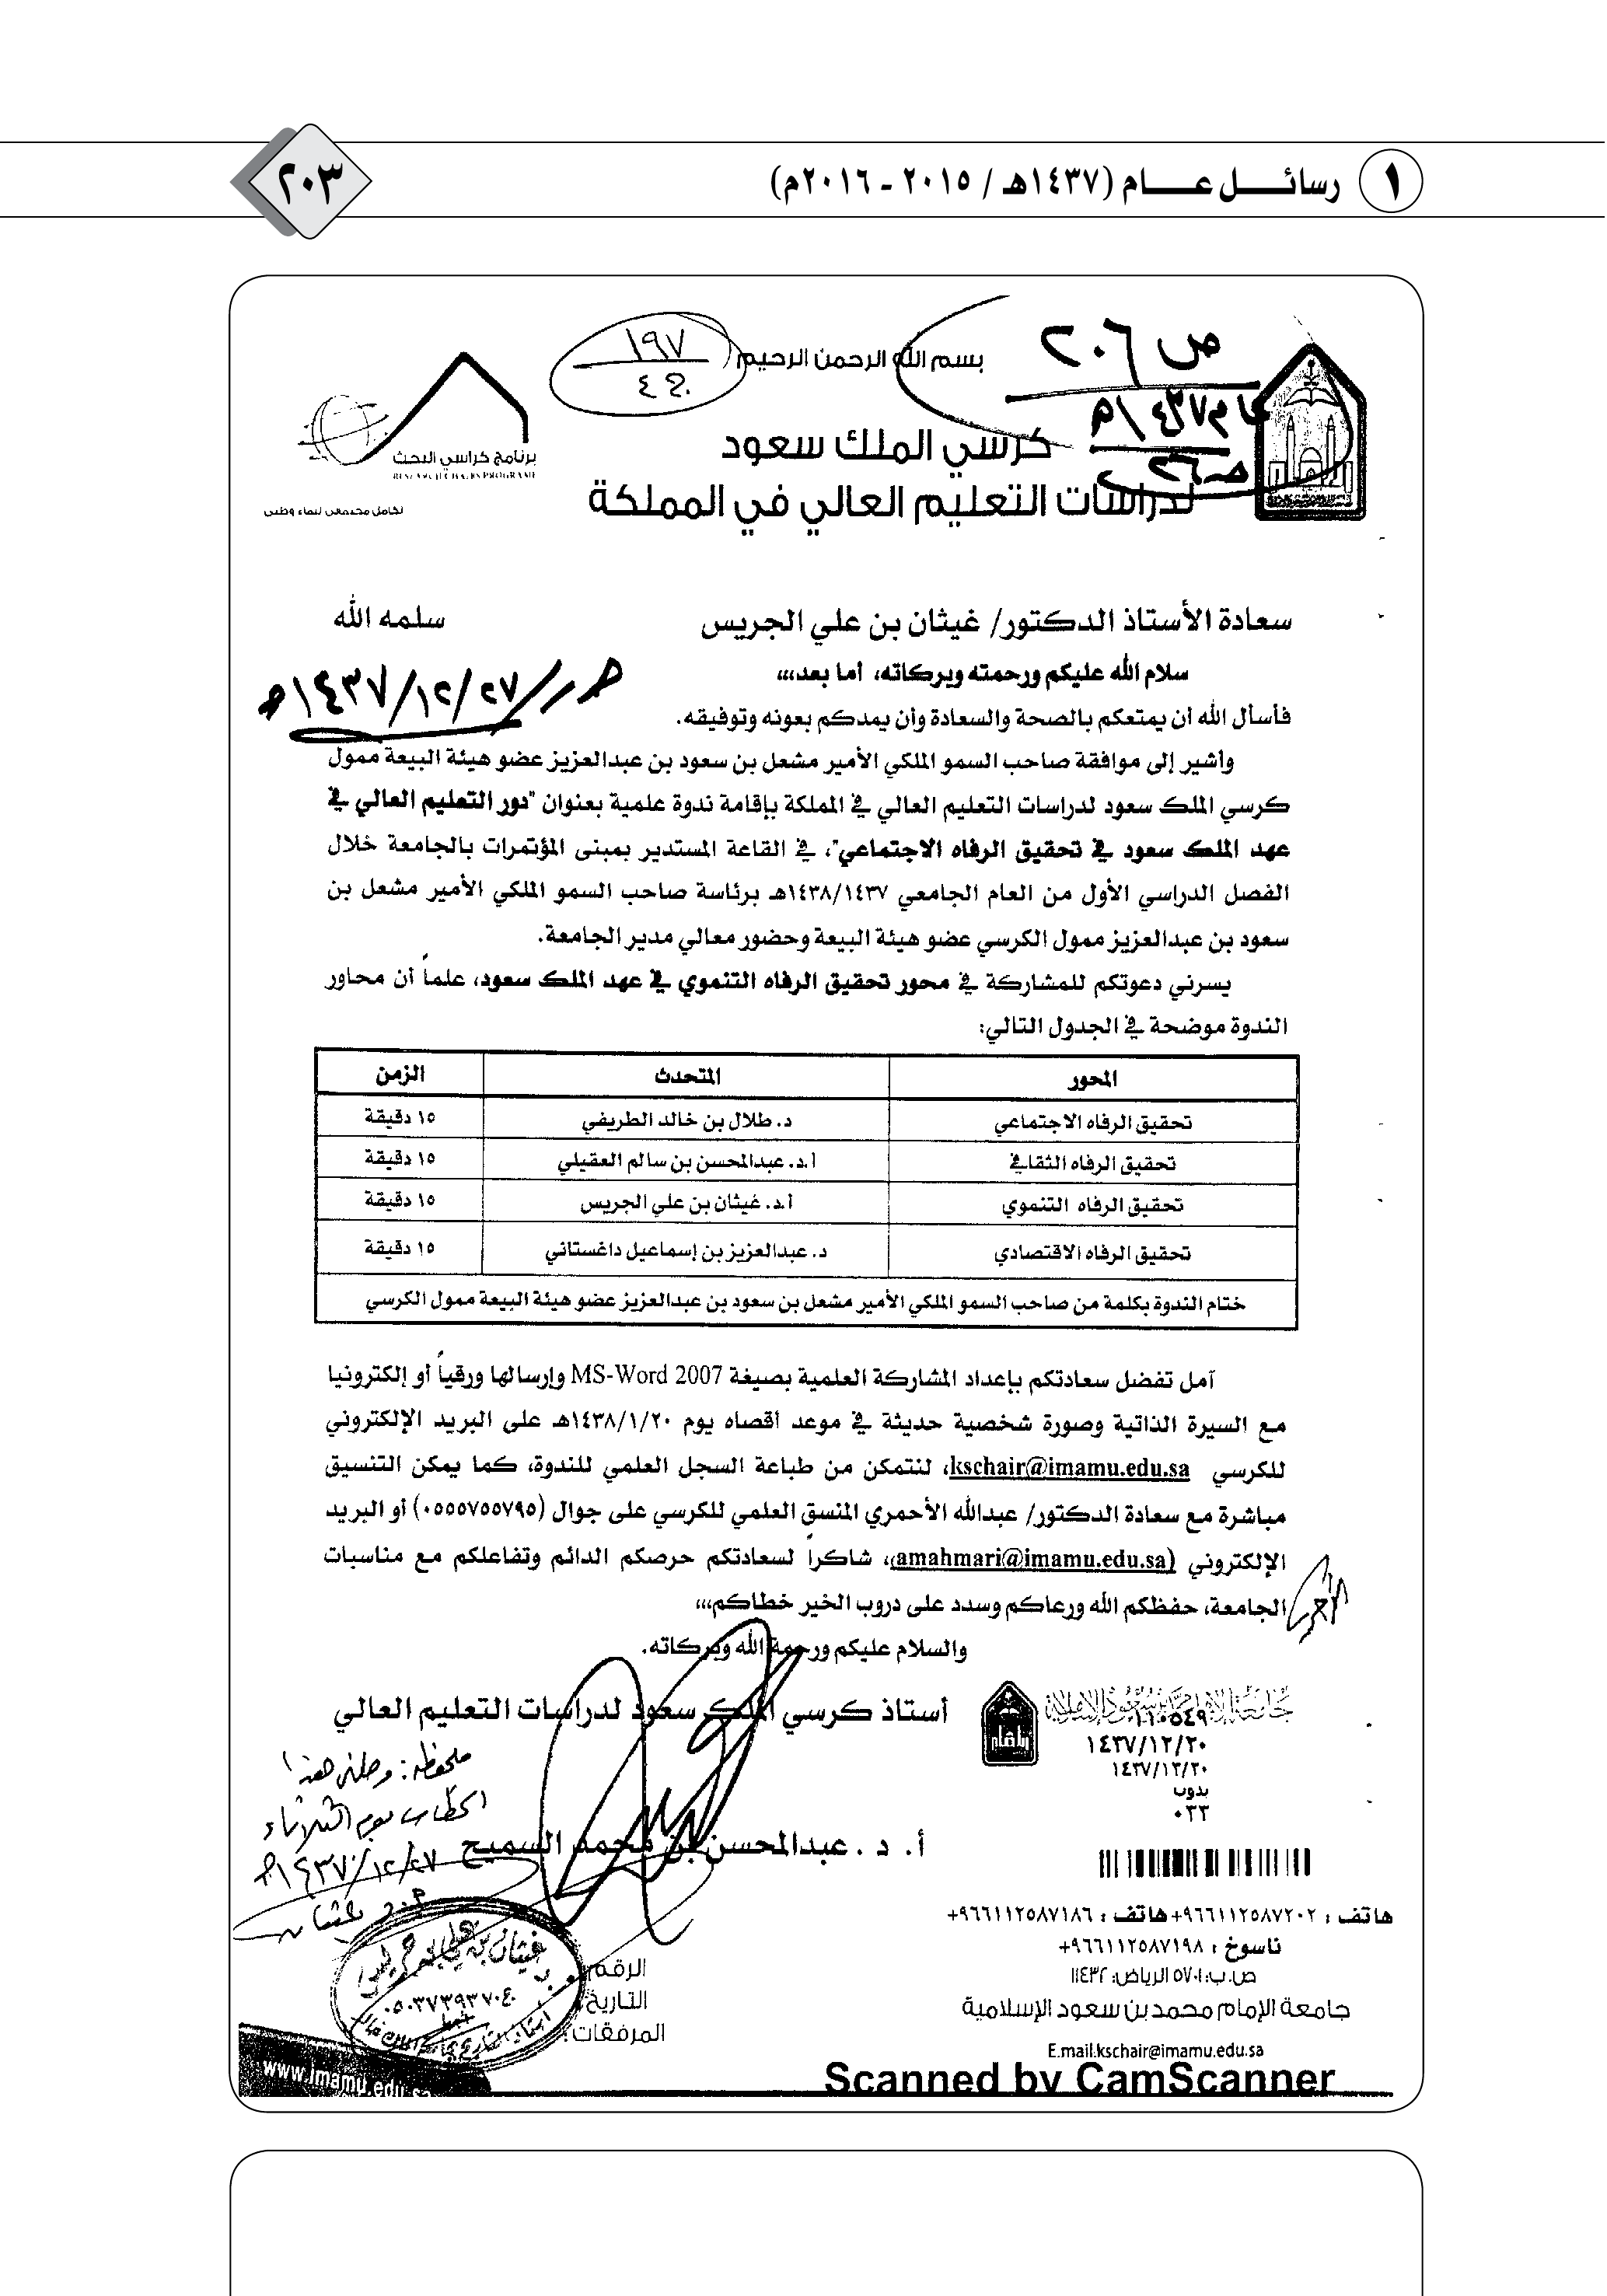 ١ رسائـــل عـــــام (١٤٣٧هـ / ٢٠١٥ - ٢٠١٦م)
٢٠٣
ص ٢٠٦
عام ١٤٣٧هـ
بسم الله الرحمن الرحيم
١٩٧
كرسي الملك سعود
لدراسات التعليم العالي في المملكة
برنامج كراسي البحث
RESEARCH CHAIRS PROGRAME
تكامل مجتمعي لنماء وطني
سعادة الأستاذ الدكتور/ غيثان بن علي الجريس سلمه الله
سلام الله عليكم ورحمته وبركاته، أما بعد،،،
١٤٣٧/١٢/٢٧هـ
فأسأل الله أن يمتعكم بالصحة والسعادة وأن يمدكم بعونه وتوفيقه.
وأشير إلى موافقة صاحب السمو الملكي الأمير مشعل بن سعود بن عبدالعزيز عضو هيئة البيعة ممول
كرسي الملك سعود لدراسات التعليم العالي في المملكة بإقامة ندوة علمية بعنوان "دور التعليم العالي في
عهد الملك سعود في تحقيق الرفاه الاجتماعي"، في القاعة المستدير بمبنى المؤتمرات بالجامعة خلال
الفصل الدراسي الأول من العام الجامعي ١٤٣٨/١٤٣٧هـ برئاسة صاحب السمو الملكي الأمير مشعل بن
سعود بن عبدالعزيز ممول الكرسي عضو هيئة البيعة وحضور معالي مدير الجامعة.
يسرني دعوتكم للمشاركة في محور تحقيق الرفاه التنموي في عهد الملك سعود، علماً أن محاور
الندوة موضحة في الجدول التالي:
المحور المتحدث الزمن
تحقيق الرفاه الاجتماعي د. طلال بن خالد الطريفي ١٥ دقيقة
تحقيق الرفاه الثقافي أ.د. عبدالمحسن بن سالم العقيلي ١٥ دقيقة
تحقيق الرفاه التنموي أ.د. غيثان بن علي الجريس ١٥ دقيقة
تحقيق الرفاه الاقتصادي د. عبدالعزيز بن إسماعيل داغستاني ١٥ دقيقة
ختام الندوة بكلمة من صاحب السمو الملكي الأمير مشعل بن سعود بن عبدالعزيز عضو هيئة البيعة ممول الكرسي
آمل تفضل سعادتكم بإعداد المشاركة العلمية بصيغة MS-Word 2007 وإرسالها ورقياً أو إلكترونيا
مع السيرة الذاتية وصورة شخصية حديثة في موعد أقصاه يوم ١٤٣٨/١/٢٠هـ على البريد الإلكتروني
للكرسي kschair@imamu.edu.sa، لنتمكن من طباعة السجل العلمي للندوة، كما يمكن التنسيق
مباشرة مع سعادة الدكتور/ عبدالله الأحمري المنسق العلمي للكرسي على جوال (٠٥٥٥٧٥٥٧٩٥) أو البريد
الإلكتروني (amahmari@imamu.edu.sa)، شاكراً لسعادتكم حرصكم الدائم وتفاعلكم مع مناسبات
الجامعة، حفظكم الله ورعاكم وسدد على دروب الخير خطاكم،،،
والسلام عليكم ورحمة الله وبركاته.
أستاذ كرسي الملك سعود لدراسات التعليم العالي
أ. د . عبدالمحسن بن محمد السميح
جامعة الإمام محمد بن سعود الإسلامية
١١٠٥٤٩
١٤٣٧/١٢/٢٠
١٤٣٧/١٢/٢٠
بدوب
٠٣٣
ملحوظة: وصلني هذا
الخطاب يوم الثلاثاء
١٤٣٧/١٢/٢٧هـ
غيثان بن علي الجريس
٠٥٠٣٧٣٩٣٧٠
هاتف : ٩٦٦١١٢٥٨٧٢٠٢+ هاتف : ٩٦٦١١٢٥٨٧١٨٦+
ناسوخ : ٩٦٦١١٢٥٨٧١٩٨+
ص.ب: ٥٧٠١ الرياض: ١١٤٣٢
جامعة الإمام محمد بن سعود الإسلامية
E.mail.kschair@imamu.edu.sa
الرقم:
التاريخ:
المرفقات:
www.imamu.edu.sa
Scanned by CamScanner